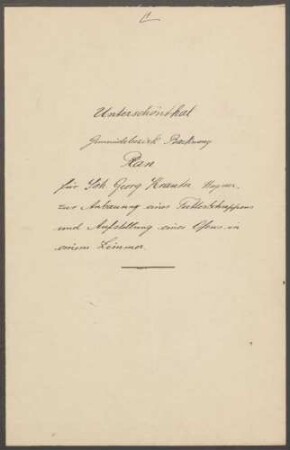 C
Unterschönthal
Gemeindebezirk Backnang
Plan
für Joh. Georg Wagner
zur Anbauung eines Futterschuppens
und Aufstellung eines Ofens in
seinem Zimmer.